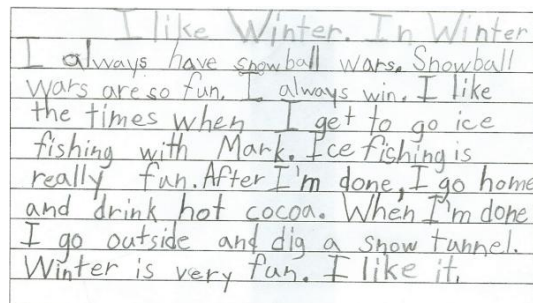 I like Winter. In Winter
I always have snowball wars. Snowball
wars are so fun. I always win. I like
the times when I get to go ice
fishing with Mark. Ice fishing is
really fun. After I'm done, I go home
and drink hot cocoa. When I'm done
I go outside and dig a snow tunnel.
Winter is very fun. I like it.